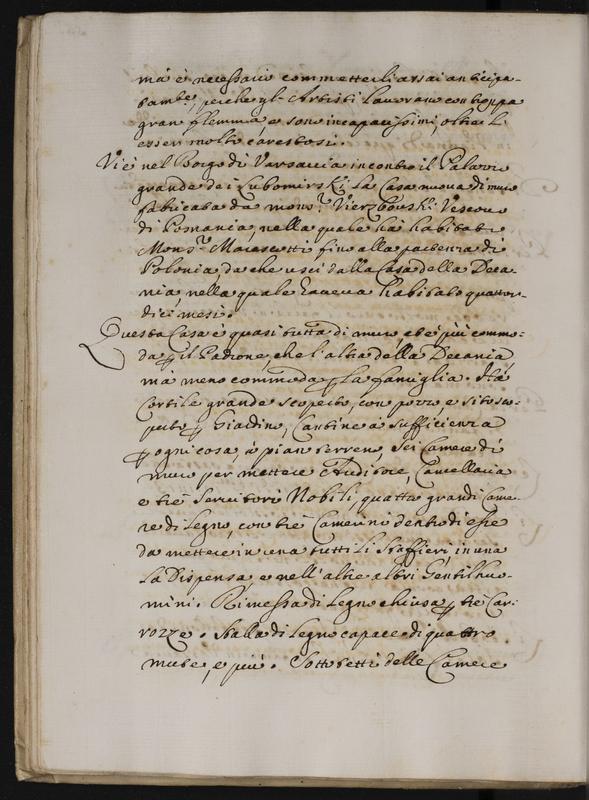 mà è necessario commetterli assai anticipa-
tam.te, perche gl'Artisti lavorano con troppa
gran flemma, e sono incapacissimi, oltre l'
esser molto carestosi.
Vi è nel Borgo di Varsavia incontro il Palazzo
grande dei Lubomirski la Casa nuova di muro
fabricata da mons.r Vierzbouski Vescovo
di Posnania, nella quale hà habitato
Mons.r Marescotti fino alla partenza di
Polonia, da che uscì dalla Casa della Deca-
nia, nella quale haveva habitato quattor-
dici mesi.
Questa Casa è quasi tutta di muro, et è più commo-
da p il Padrone, che l'altra della Decania,
mà meno commoda p la famiglia. Hà
Cortile grande scoperto, con pozzo, e sito sco-
perto p Giardino, Cantine à sufficienza
p ogni cosa, à pian terreno, sei Camere di
muro per mettere Auditore, Cancellaria
e trè Servitori Nobili, quattro grandi Came-
re di legno, con trè Camerini dentro di esse
da mettere in una tutti li Staffieri, in una
la Dispensa, e nell'altre altri Gentilhuo-
mini. Rimessa di legno chiusa p trè Car-
rozze. Stalla di legno capace di quattro
mute, e più. Sotto tetti delle Camere